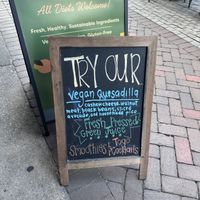 All Diets Welcome!
Fresh, Healthy, Sustainable Ingredients
Gluten-Free
TRY OUR
Vegan Quesadilla
cashew cheese, walnut
meat, black beans, sliced
avocado, and housemade pico
Fresh Pressed
Green Juice
Smoothies &
Top
Mocktails